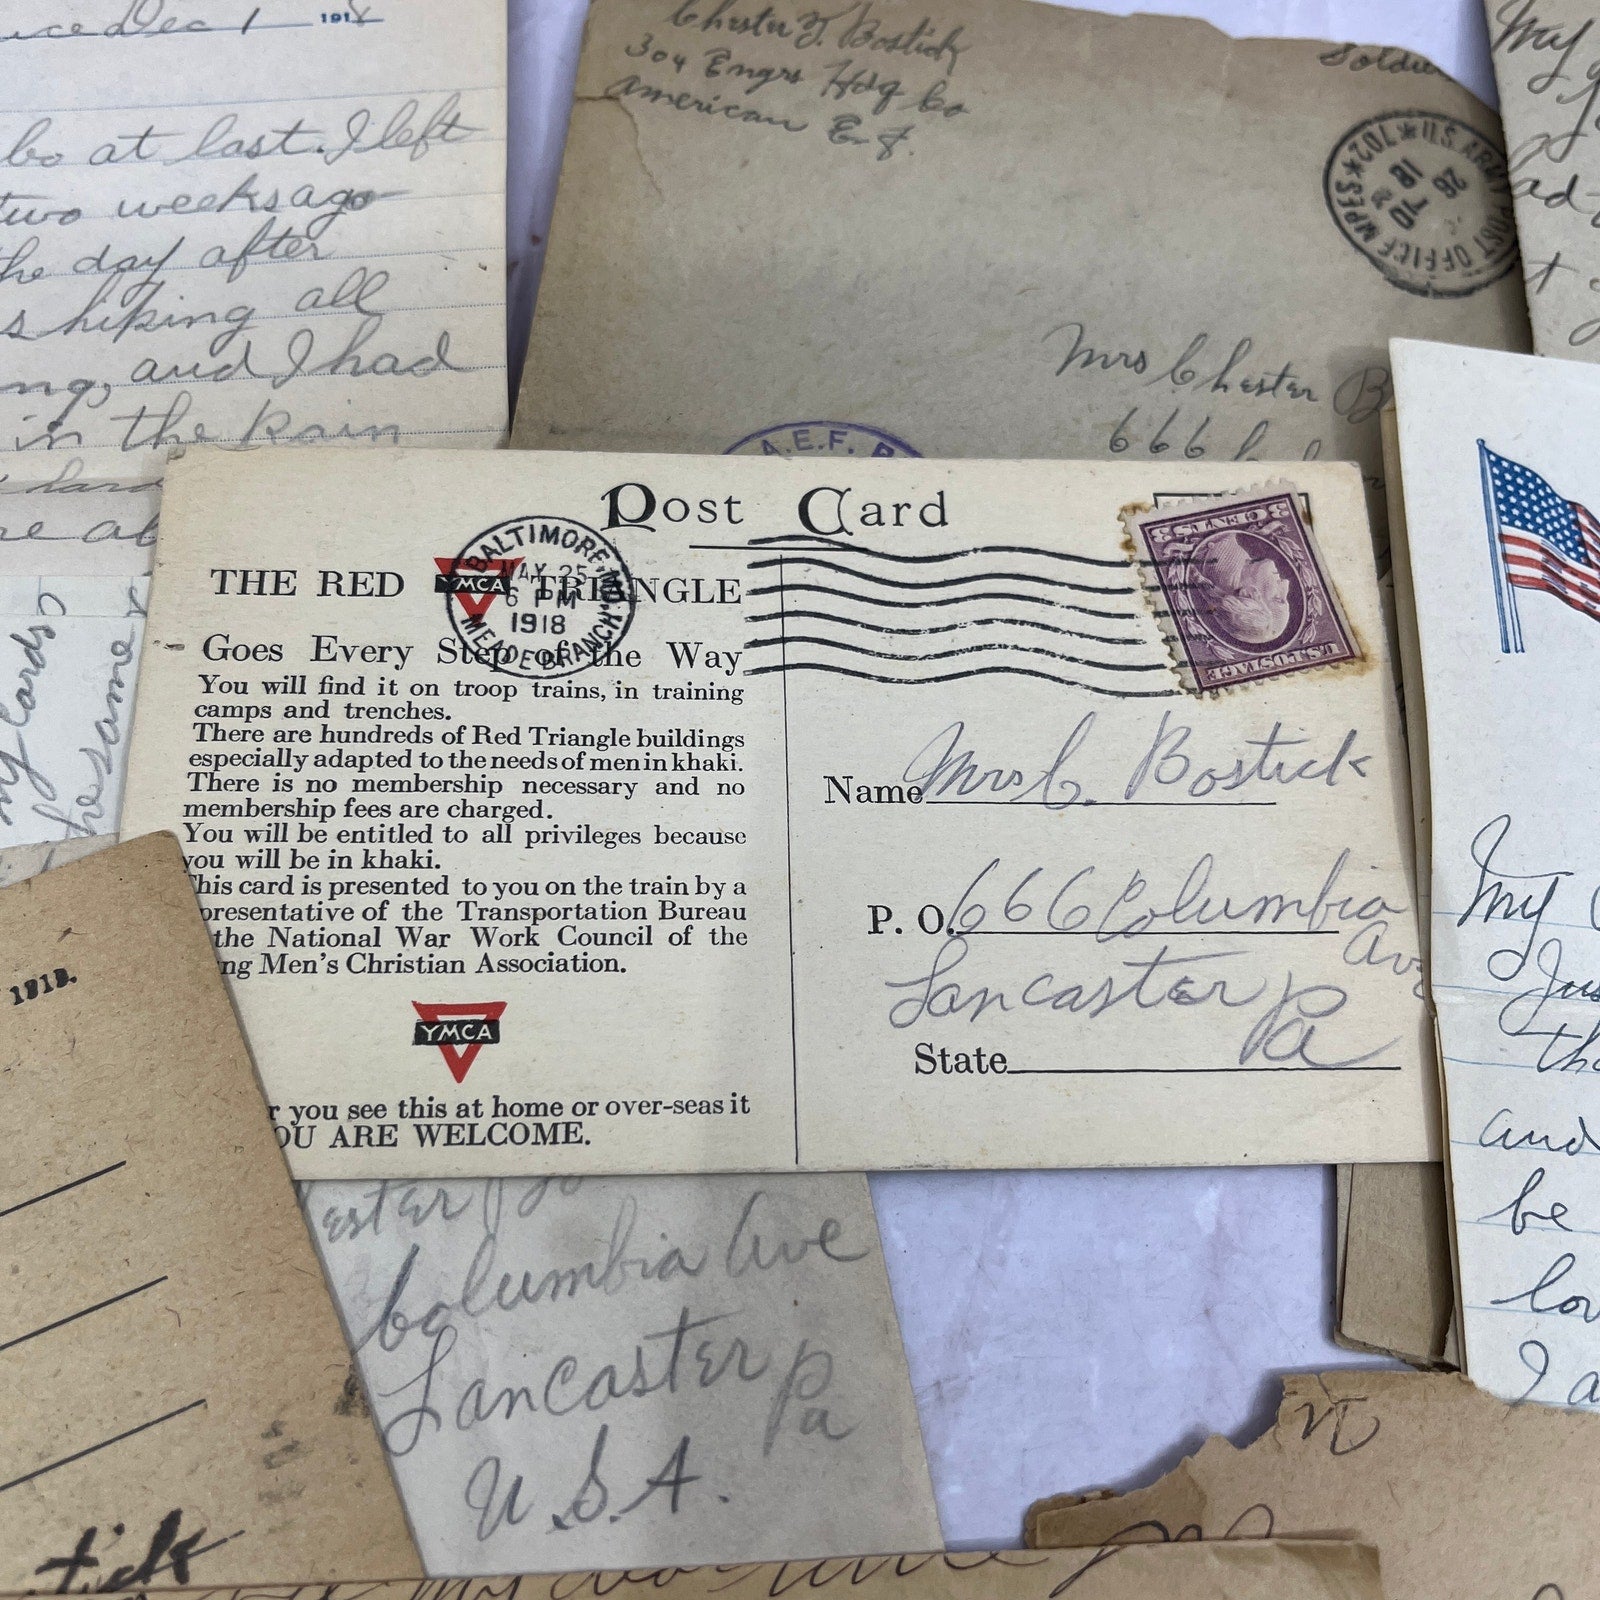 Dec 1 1918
at last. I left
two weeks ago
the day after
hiking all
and I had
in the Rain
hard
Chester Y. Bostick
304 Engrs Hdq Co
American E. F.
Soldier
U.S. ARMY POST OFFICE MPES * 702 *
26
18
Mrs Chester B
666
A.E.F.
My
Post Card
THE RED YMCA TRIANGLE
BALTIMORE, MD.
MAY 25
6 PM
1918
MEADE BRANCH
Goes Every Step of the Way
You will find it on troop trains, in training
camps and trenches.
There are hundreds of Red Triangle buildings
especially adapted to the needs of men in khaki.
There is no membership necessary and no
membership fees are charged.
You will be entitled to all privileges because
you will be in khaki.
This card is presented to you on the train by a
presentative of the Transportation Bureau
the National War Work Council of the
ng Men's Christian Association.
YMCA
r you see this at home or over-seas it
OU ARE WELCOME.
3 CENTS 3
U.S. POSTAGE
Name Mrs C. Bostick
P. O. 666 Columbia
Ave
Lancaster Pa
State Pa
my Cards
the same
1918.
tick
Columbia Ave
Lancaster Pa
U.S.A.
My
Jus
tha
and
be
lov
I a